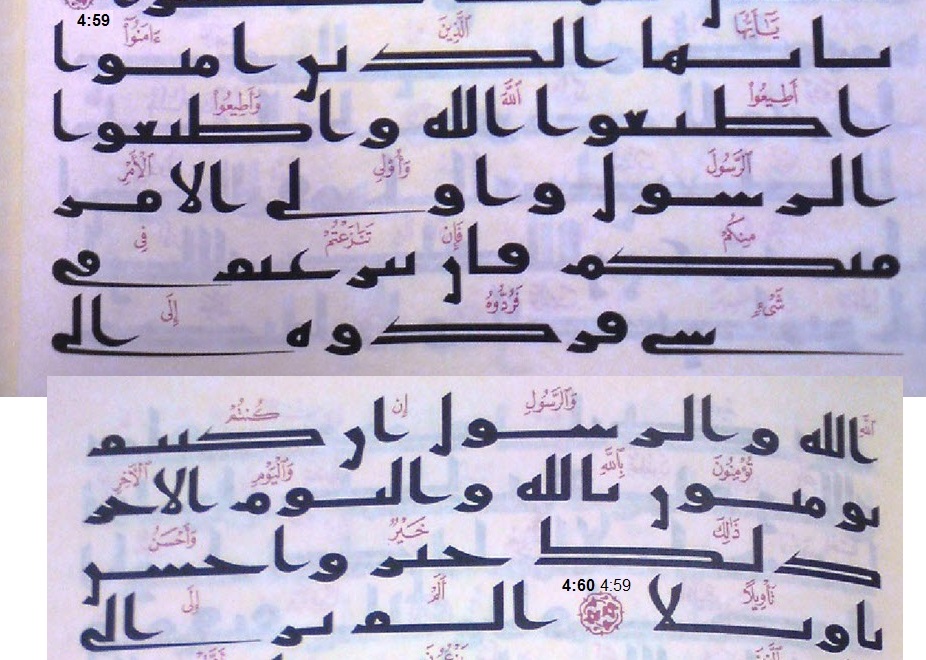 4:59
يَٰٓأَيُّهَا ٱلَّذِينَ ءَامَنُوٓا۟
يايها الذين امنوا
أَطِيعُوا۟ ٱللَّهَ وَأَطِيعُوا۟
اطيعوا الله واطيعوا
ٱلرَّسُولَ وَأُو۟لِى ٱلْأَمْرِ
الرسول واولي الامر
مِنكُمْ فَإِن تَنَٰزَعْتُمْ فِى
منكم فان تنزعتم في
شَىْءٍ فَرُدُّوهُ إِلَى
شي فردوه الي
ٱللَّهِ وَٱلرَّسُولِ إِن كُنتُمْ
الله والرسول ان كنتم
تُؤْمِنُونَ بِٱللَّهِ وَٱلْيَوْمِ ٱلْءَاخِرِ
تومنون بالله واليوم الاخر
ذَٰلِكَ خَيْرٌ وَأَحْسَنُ
ذلك خير واحسن
تَأْوِيلًا 4:60 4:59 أَلَمْ إِلَى
تاويلا الم تر الي